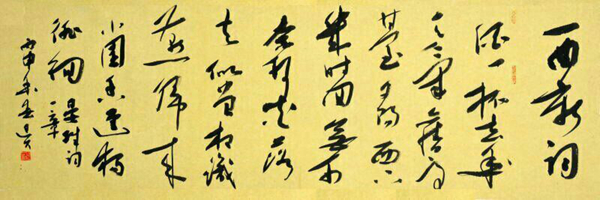 一曲新词
酒一杯去年
天气旧亭
台夕阳西下
几时回无可
奈何花落
去似曾相识
燕归来
小园香径独
徘徊 晏殊词
一章
丙申年